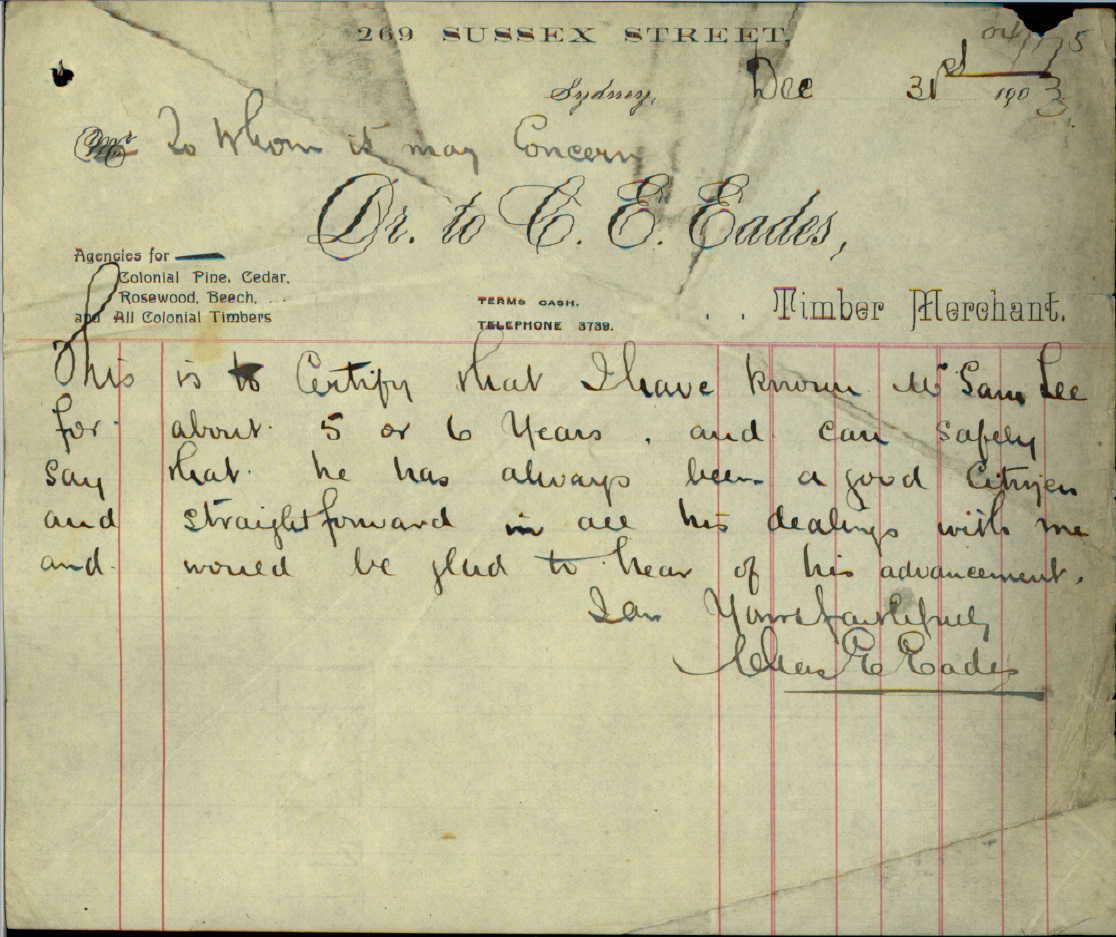 269 SUSSEX STREET.
Sydney, Dec 31st 1903
Mr To Whom it may Concern
Dr. to C. E. Eades,
Agencies for
Colonial Pine, Cedar,
Rosewood, Beech,
and All Colonial Timbers
TERMS CASH.
TELEPHONE 3739.
Timber Merchant.
This is to Certify that I have known Mr Sam Lee
for about 5 or 6 Years, and can safely
say that he has always been a good Citizen
and straightforward in all his dealings with me
and would be glad to hear of his advancement.
I am Yours faithfully
Chas E Eades